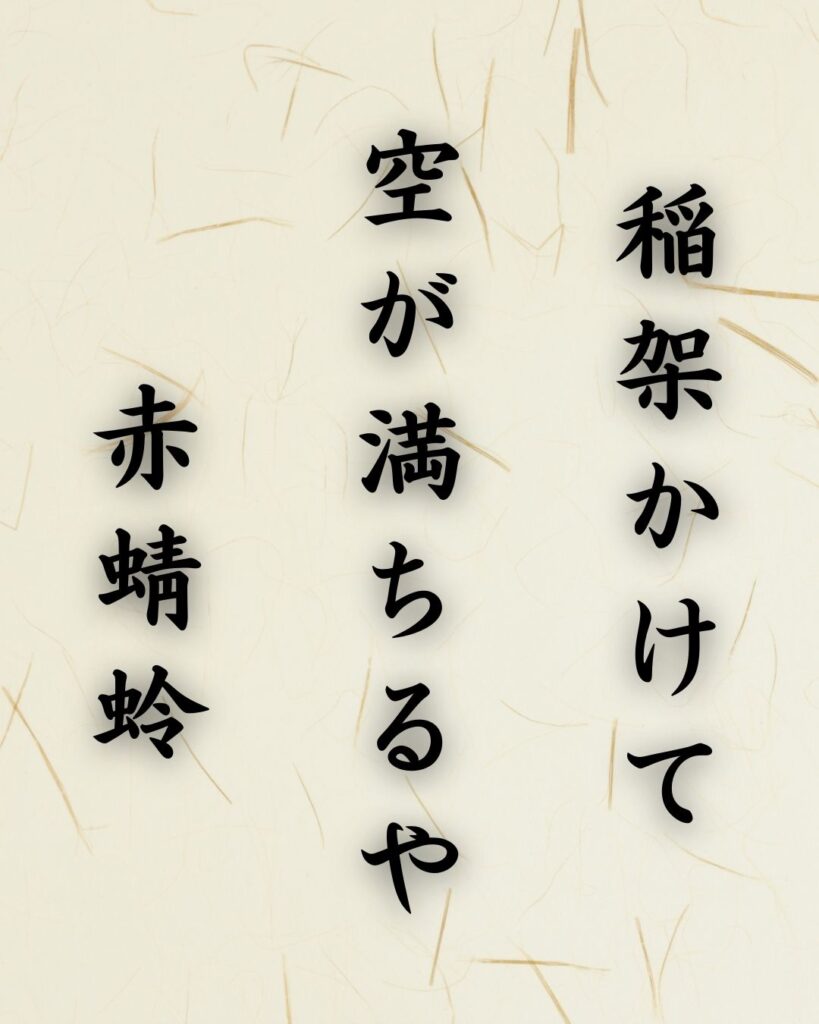 稲架かけて
空が満ちるや
赤蜻蛉